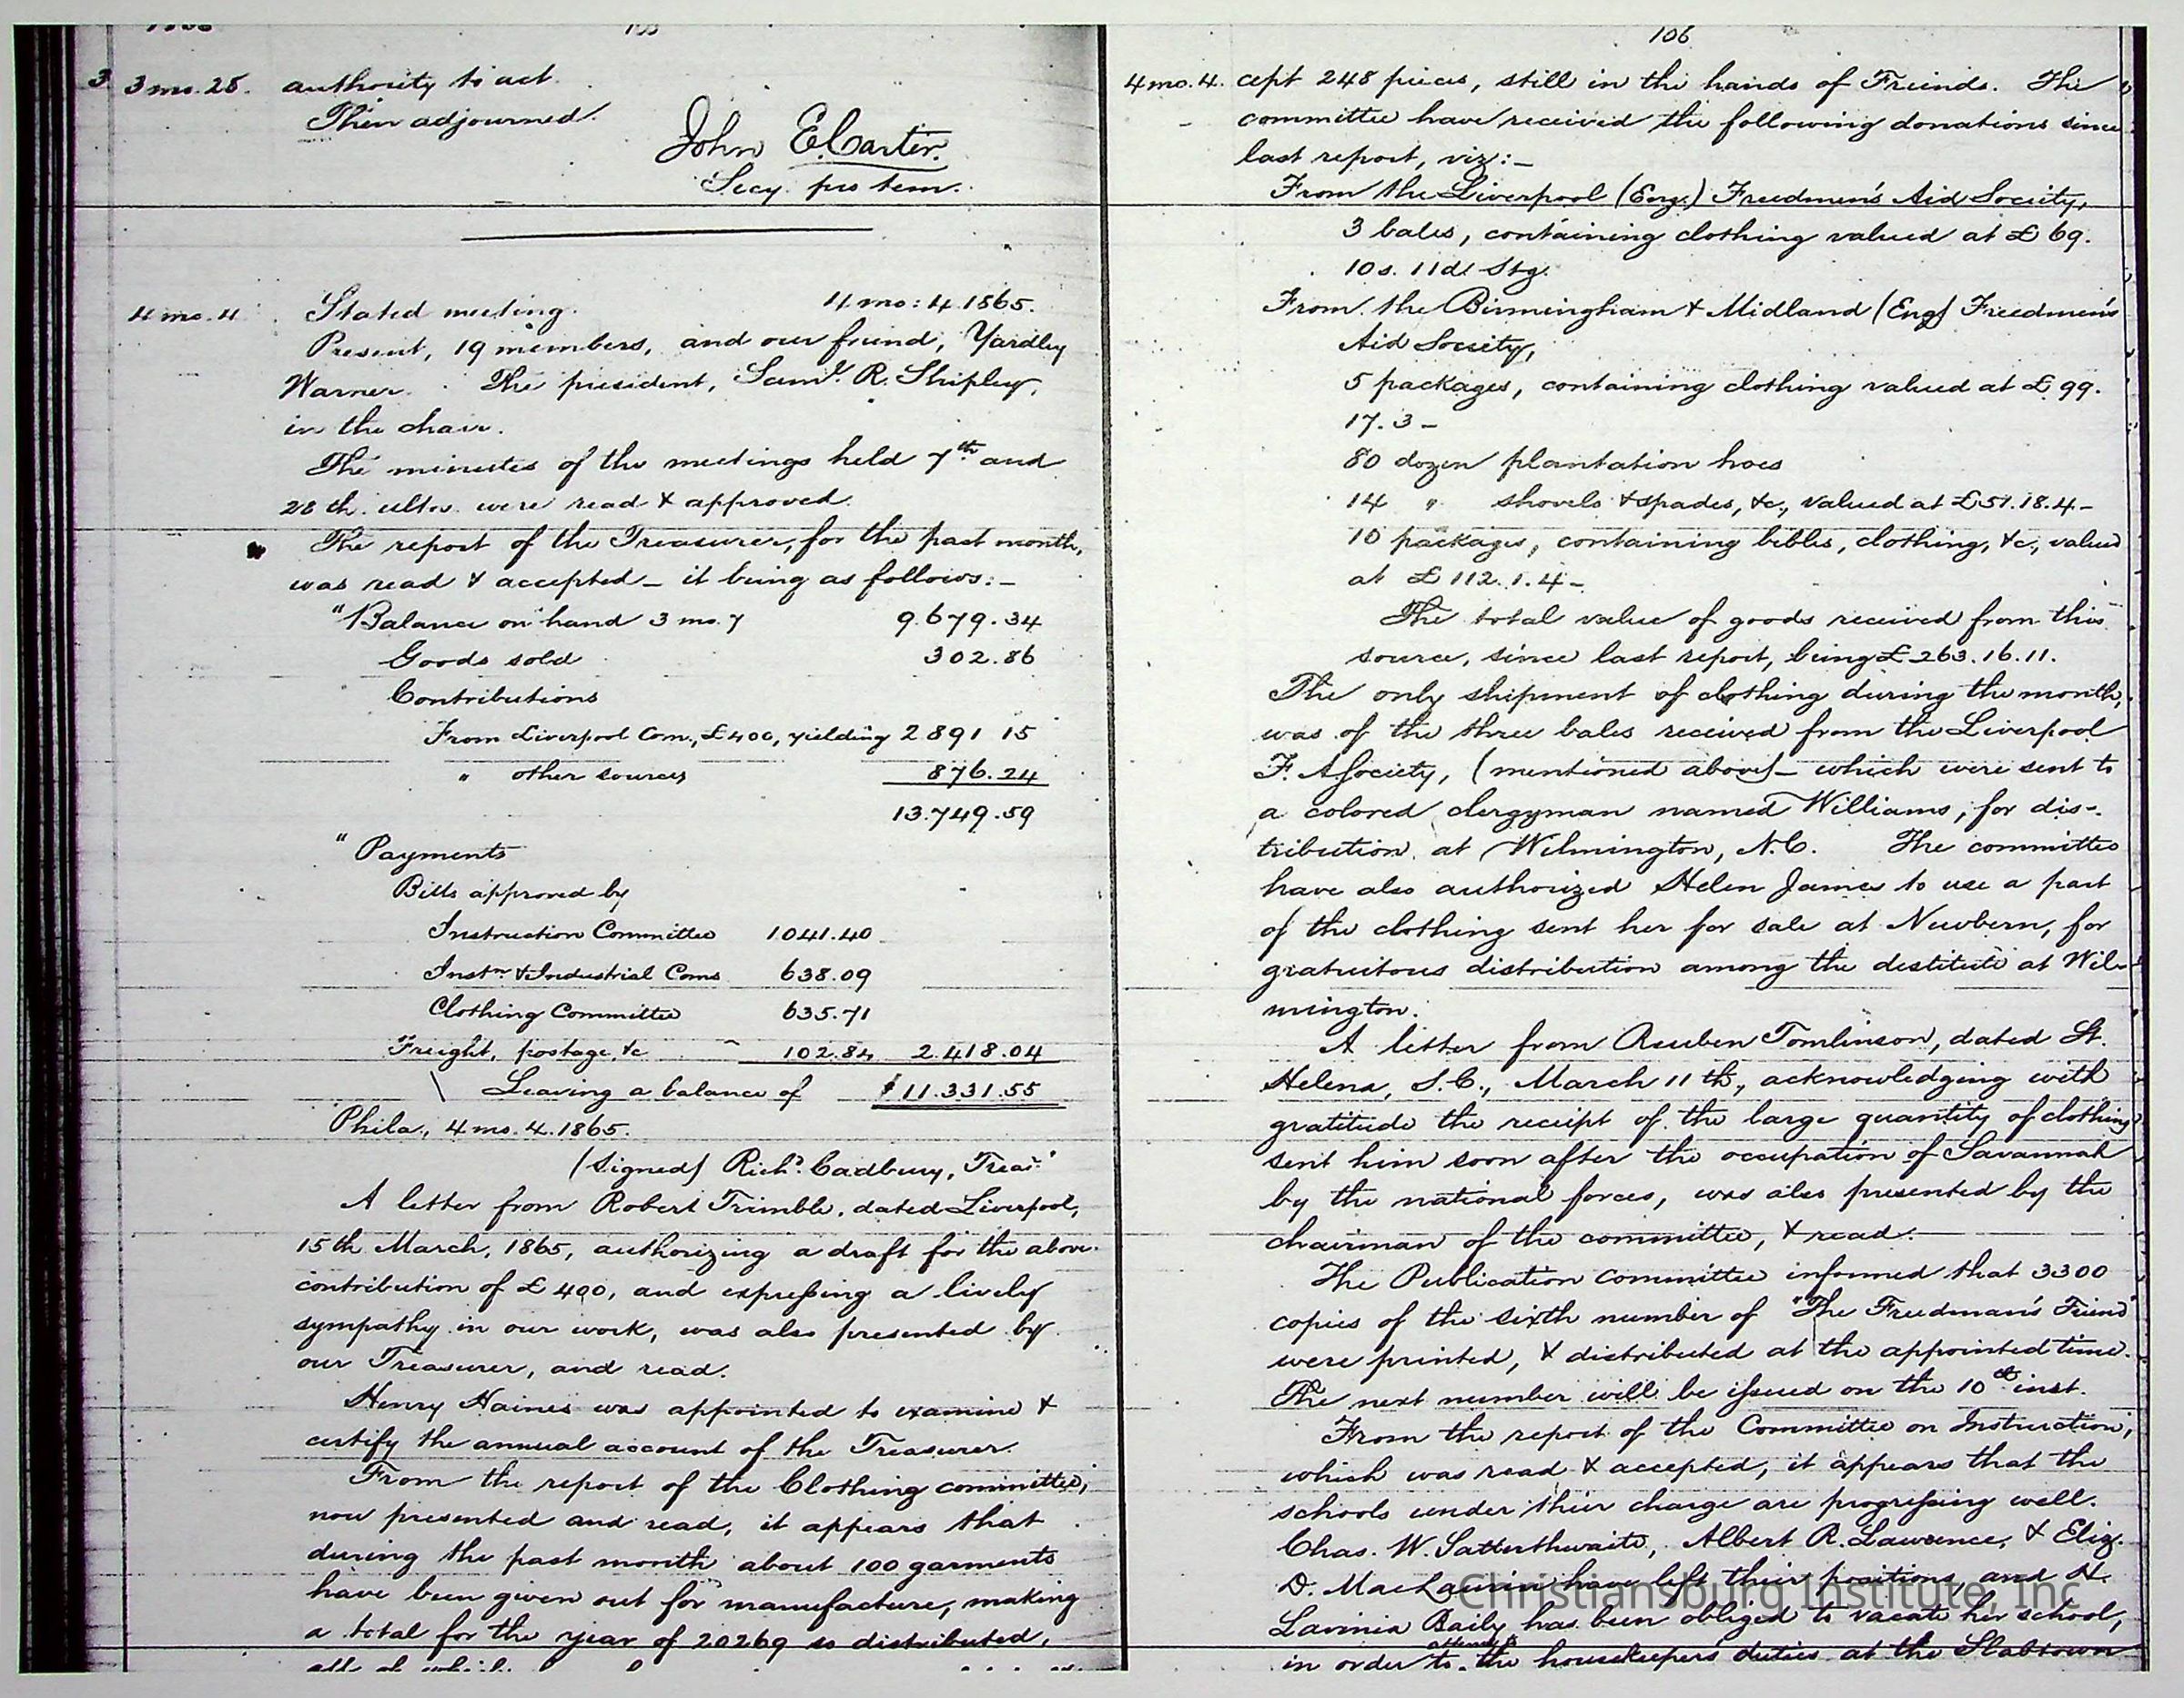 3 3 mo. 28. authority to act.
Then adjourned.
John E. Carter.
Secy. pro tem.
4 mo. 4 Stated meeting. 4 mo: 4. 1865.
Present, 19 members, and our friend, Yardley
Warner. The president, Saml. R. Shipley,
in the chair.
The minutes of the meetings held 7th and
28th. ulto. were read & approved.
The report of the Treasurer, for the past month,
was read & accepted – it being as follows: –
"Balance on hand 3 mo. 7 9.679.34
Goods sold 302.86
Contributions
From Liverpool Com., £400, yielding 2.891 15
" other sources 876.24
13.749.59
"Payments
Bills approved by
Instruction Committee 1041.40
Instn. & Industrial Coms 638.09
Clothing Committee 635.71
Freight, postage, &c 102.84 2.418.04
Leaving a balance of $11.331.55
Phila., 4 mo. 4. 1865.
(Signed) Richd. Cadbury, Treasr."
A letter from Robert Trimble, dated Liverpool,
15th March, 1865, authorizing a draft for the above
contribution of £400, and expressing a lively
sympathy in our work, was also presented by
our Treasurer, and read.
Henry Haines was appointed to examine &
certify the annual account of the Treasurer.
From the report of the Clothing committee,
now presented and read, it appears that
during the past month about 100 garments
have been given out for manufacture, making
a total for the year of 20269 so distributed,
106
4 mo. 4. cept 248 pieces, still in the hands of Friends. The
committee have received the following donations since
last report, viz: –
From the Liverpool (Eng.) Freedmen's Aid Society,
3 bales, containing clothing valued at £69.
10s. 11d. Stg.
From the Birmingham & Midland (Eng) Freedmen's
Aid Society,
5 packages, containing clothing valued at £99.
17. 3 –
80 dozen plantation hoes
14 " shovels & spades, &c., valued at £51.18.4 –
10 packages, containing bibles, clothing, &c., valued
at £112. 1. 4 –
The total value of goods received from this
source, since last report, being £263.16.11.
The only shipment of clothing during the month,
was of the three bales received from the Liverpool
F. A Society, (mentioned above) – which were sent to
a colored clergyman named Williams, for dis-
tribution at Wilmington, N.C. The committee
have also authorized Helen James to use a part
of the clothing sent her for sale at Newbern, for
gratuitous distribution among the destitute at Wil-
mington.
A letter from Reuben Tomlinson, dated St.
Helena, S.C., March 11th, acknowledging with
gratitude the receipt of the large quantity of clothing
sent him soon after the occupation of Savannah
by the national forces, was also presented by the
chairman of the committee, & read.
The Publication committee informed that 3300
copies of the sixth number of "The Freedman's Friend"
were printed, & distributed at the appointed time.
The next number will be issued on the 10th inst.
From the report of the Committee on Instruction,
which was read & accepted, it appears that the
schools under their charge are progressing well.
Chas. W. Satterthwaite, Albert R. Lawrence, & Eliz.
D. MacLaurin have left their positions, and H.
Lavinia Baily has been obliged to vacate her school,
in order to attend to the housekeeper's duties at the Slabtown
Christiansburg Institute, Inc